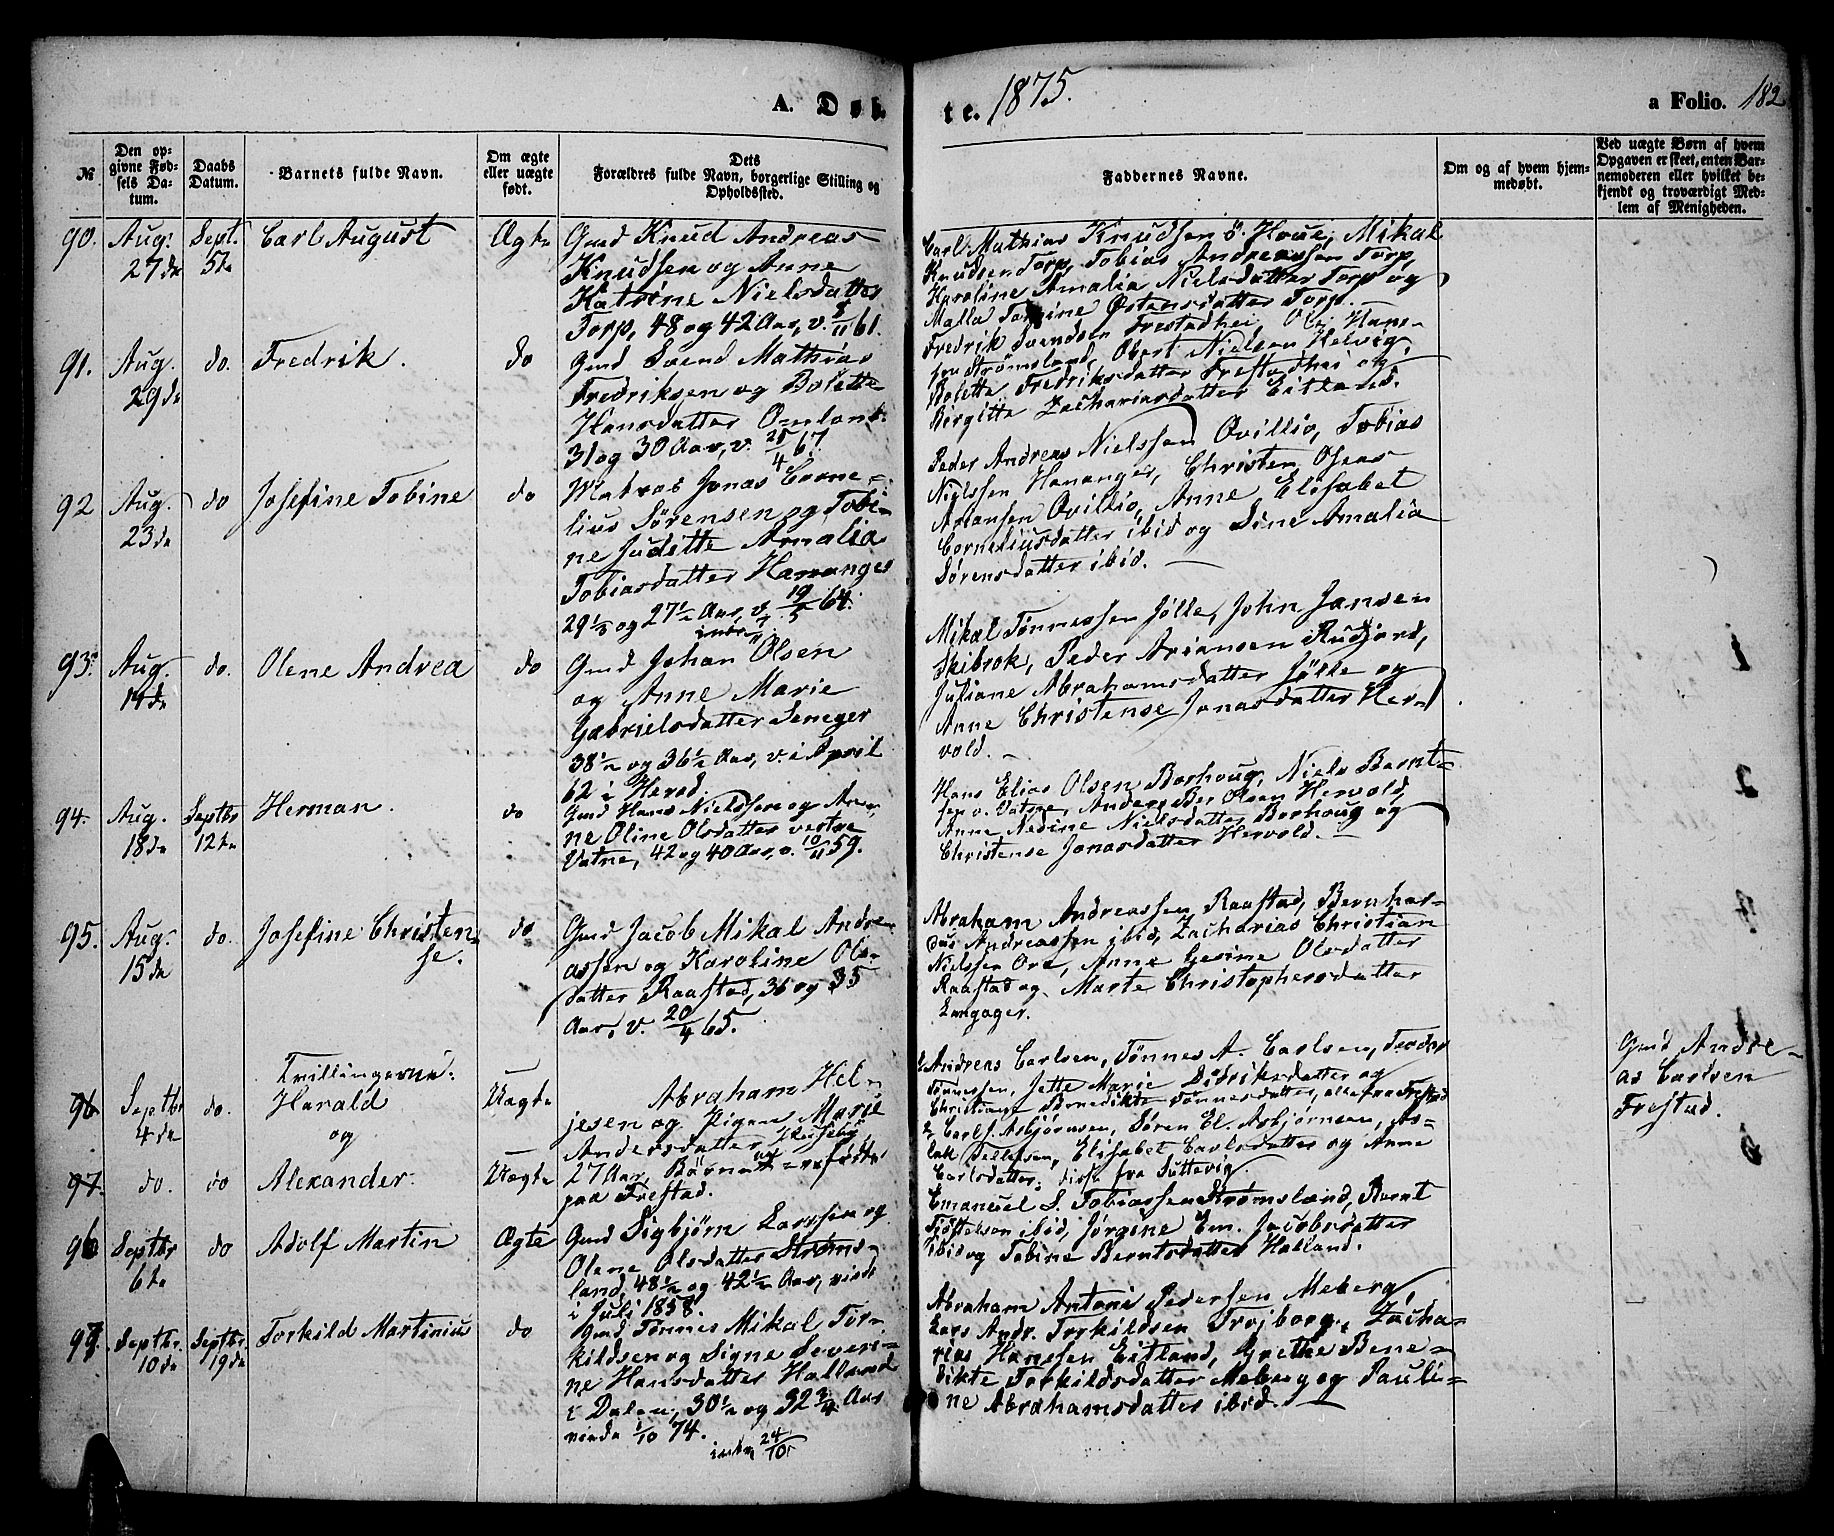 A. Døb
te. 1875.
a Folio. 182
№
Den op-
givne Fød-
sels Da-
tum.
Daabs
Datum.
Barnets fulde Navn.
Om ægte
eller uægte
født.
Dets
Forældres fulde Navn, borgerlige Stilling og
Opholdssted.
Faddernes Navne.
Om og af hvem hjem-
medøbt.
Ved uægte Børn af hvem
Opgaven er skeet, enten Bar-
nemoderen eller hvilket be-
kjendt og troværdigt Med-
lem af Menigheden.
90. Aug. 27de
Sept. 5te
Carl August
Ægte
Gmd Knud Andreas
Knudsen og Anne
Katrine Nielsdatter
Torp, 48 og 42 Aar, v. 61.
Carl Mathias Knudsen ö. Houe, Mikal
Knudsen Torp, Tobias Andreassen Torp,
Karoline Amalia Nielsdatter Torp og
Malla Tomine Østensdatter Torp.
91. Aug. 29de
do.
Fredrik.
do
Gmd Svend Mathias
Fredriksen og Bolette
Hansdatter Omland
31 og 30 Aar, v. 25/4 67.
Fredrik Svendsen Frestadhei, Ole Han-
sen Strømsland, Obert Nielsen Helvig,
Bolette Fredriksdatter Frestadhei og
Birgitte Zachariasdatter Eitland.
92 Aug. 23de
do
Josefine Tobine
do
Matros Jonas Corne-
lius Sørensen og Tobi-
ne Juditte Amalia
Tobiasdatter Hananger
29 1/3 og 27 1/2 Aar, v. 19/5 64.
Peder Andreas Nielssen Ovillio, Tobias
Nielssen Hananger, Christen Oseas
Ariansen Ovillio, Anne Elisabet
Corneliusdatter ibid og Sine Amalia
Sørensdatter ibid. —
93. Aug. 14de
do.
Olene Andrea
do
Gmd Johan Olsen
og Anne Marie
Gabrielsdatter Seneger
38 1/2 og 36 1/2 Aar, v. i April
62 i Herad.
Mikal Tönnessen Jölle, John Jansen
Skibrok, Peder Ariansen Rudjord,
Juliane Abrahamsdatter Jölle og
Anne Christense Jonasdatter Her-
vold. —
94. Aug. 18de
Septbr 12te
Herman.
do
Gmd Hans Nielssen og An-
ne Oline Olsdatter vestre
Vatne, 42 og 40 Aar, v. 10/11 59.
Hans Elias Olsen Borhoug, Niels Bernt-
sen v. Vatne, Anders Ber. Olsen Hervold,
Anne Nedine Nielsdatter Borhoug og
Christense Jonasdatter Hervold. —
95. Aug. 15de
do.
Josefine Christen-
se.
do
Gmd Jacob Mikal Andre-
assen og Karoline Ols-
datter Raastad, 36 og 35
Aar, v. 20/4 65.
Abraham Andreassen Raastad, Bernhar-
dus Andreassen ibid, Zacharias Christian
Nielssen Ore, Anne Gesine Olsdatter
Raastad og Marte Christophersdatter
Langager.
96 Septbr 4de
do.
Tvillingerne:
Harald
og
Uægte
Abraham Hel-
jesen og Pigen Marie
Andersdatter
27 Aar, Børnene ere fødte
paa Frestad.
Andreas Carlsen, Tønnes A. Carlsen, Teodor
Tønnessen, Jette Marie Didriksdatter og
Christiane Benedikte Tønnesdatter, alle fra Frestad
Carl Asbjørnsen, Søren El. Asbjørnsen, As-
lak Tellefsen, Elisabet Carlsdatter og Anne
Carlsdatter, disse fra Suttevig.
Gmd Andre-
as Carlsen
Frestad.
97. do.
do
Alexander.
Uægte
96 Septbr 6te
do
Adolf Martin
Ægte
Gmd Sigbjörn Larssen og
Olene Olsdatter Strøms-
land, 48 1/2 og 42 1/2 Aar, viede
i Juli 1858.
Emanuel S. Tobiassen Strømsland, Bernt
ibid, Jørgine Em. Jacobsdatter
ibid og Tobine Berntsdatter Halland.
97. Septbr. 10de
Septbr. 19de
Torkild Martinius
do
Gmd Tönnes Mikal Tor-
kildsen og Signe Severi-
ne Hansdatter Halland
i Dalen, 30 1/2 og 32 3/4 Aar
viede 1/10 74.
24/10.
Abraham Antoni Pedersen Meberg,
Lars Andr. Torkildsen Trojborg, Zacha-
rias Hanssen Eitland, Grethe Bene-
dikte Torkildsdatter Meberg og Pauli-
ne Abrahamsdatter ibid. —